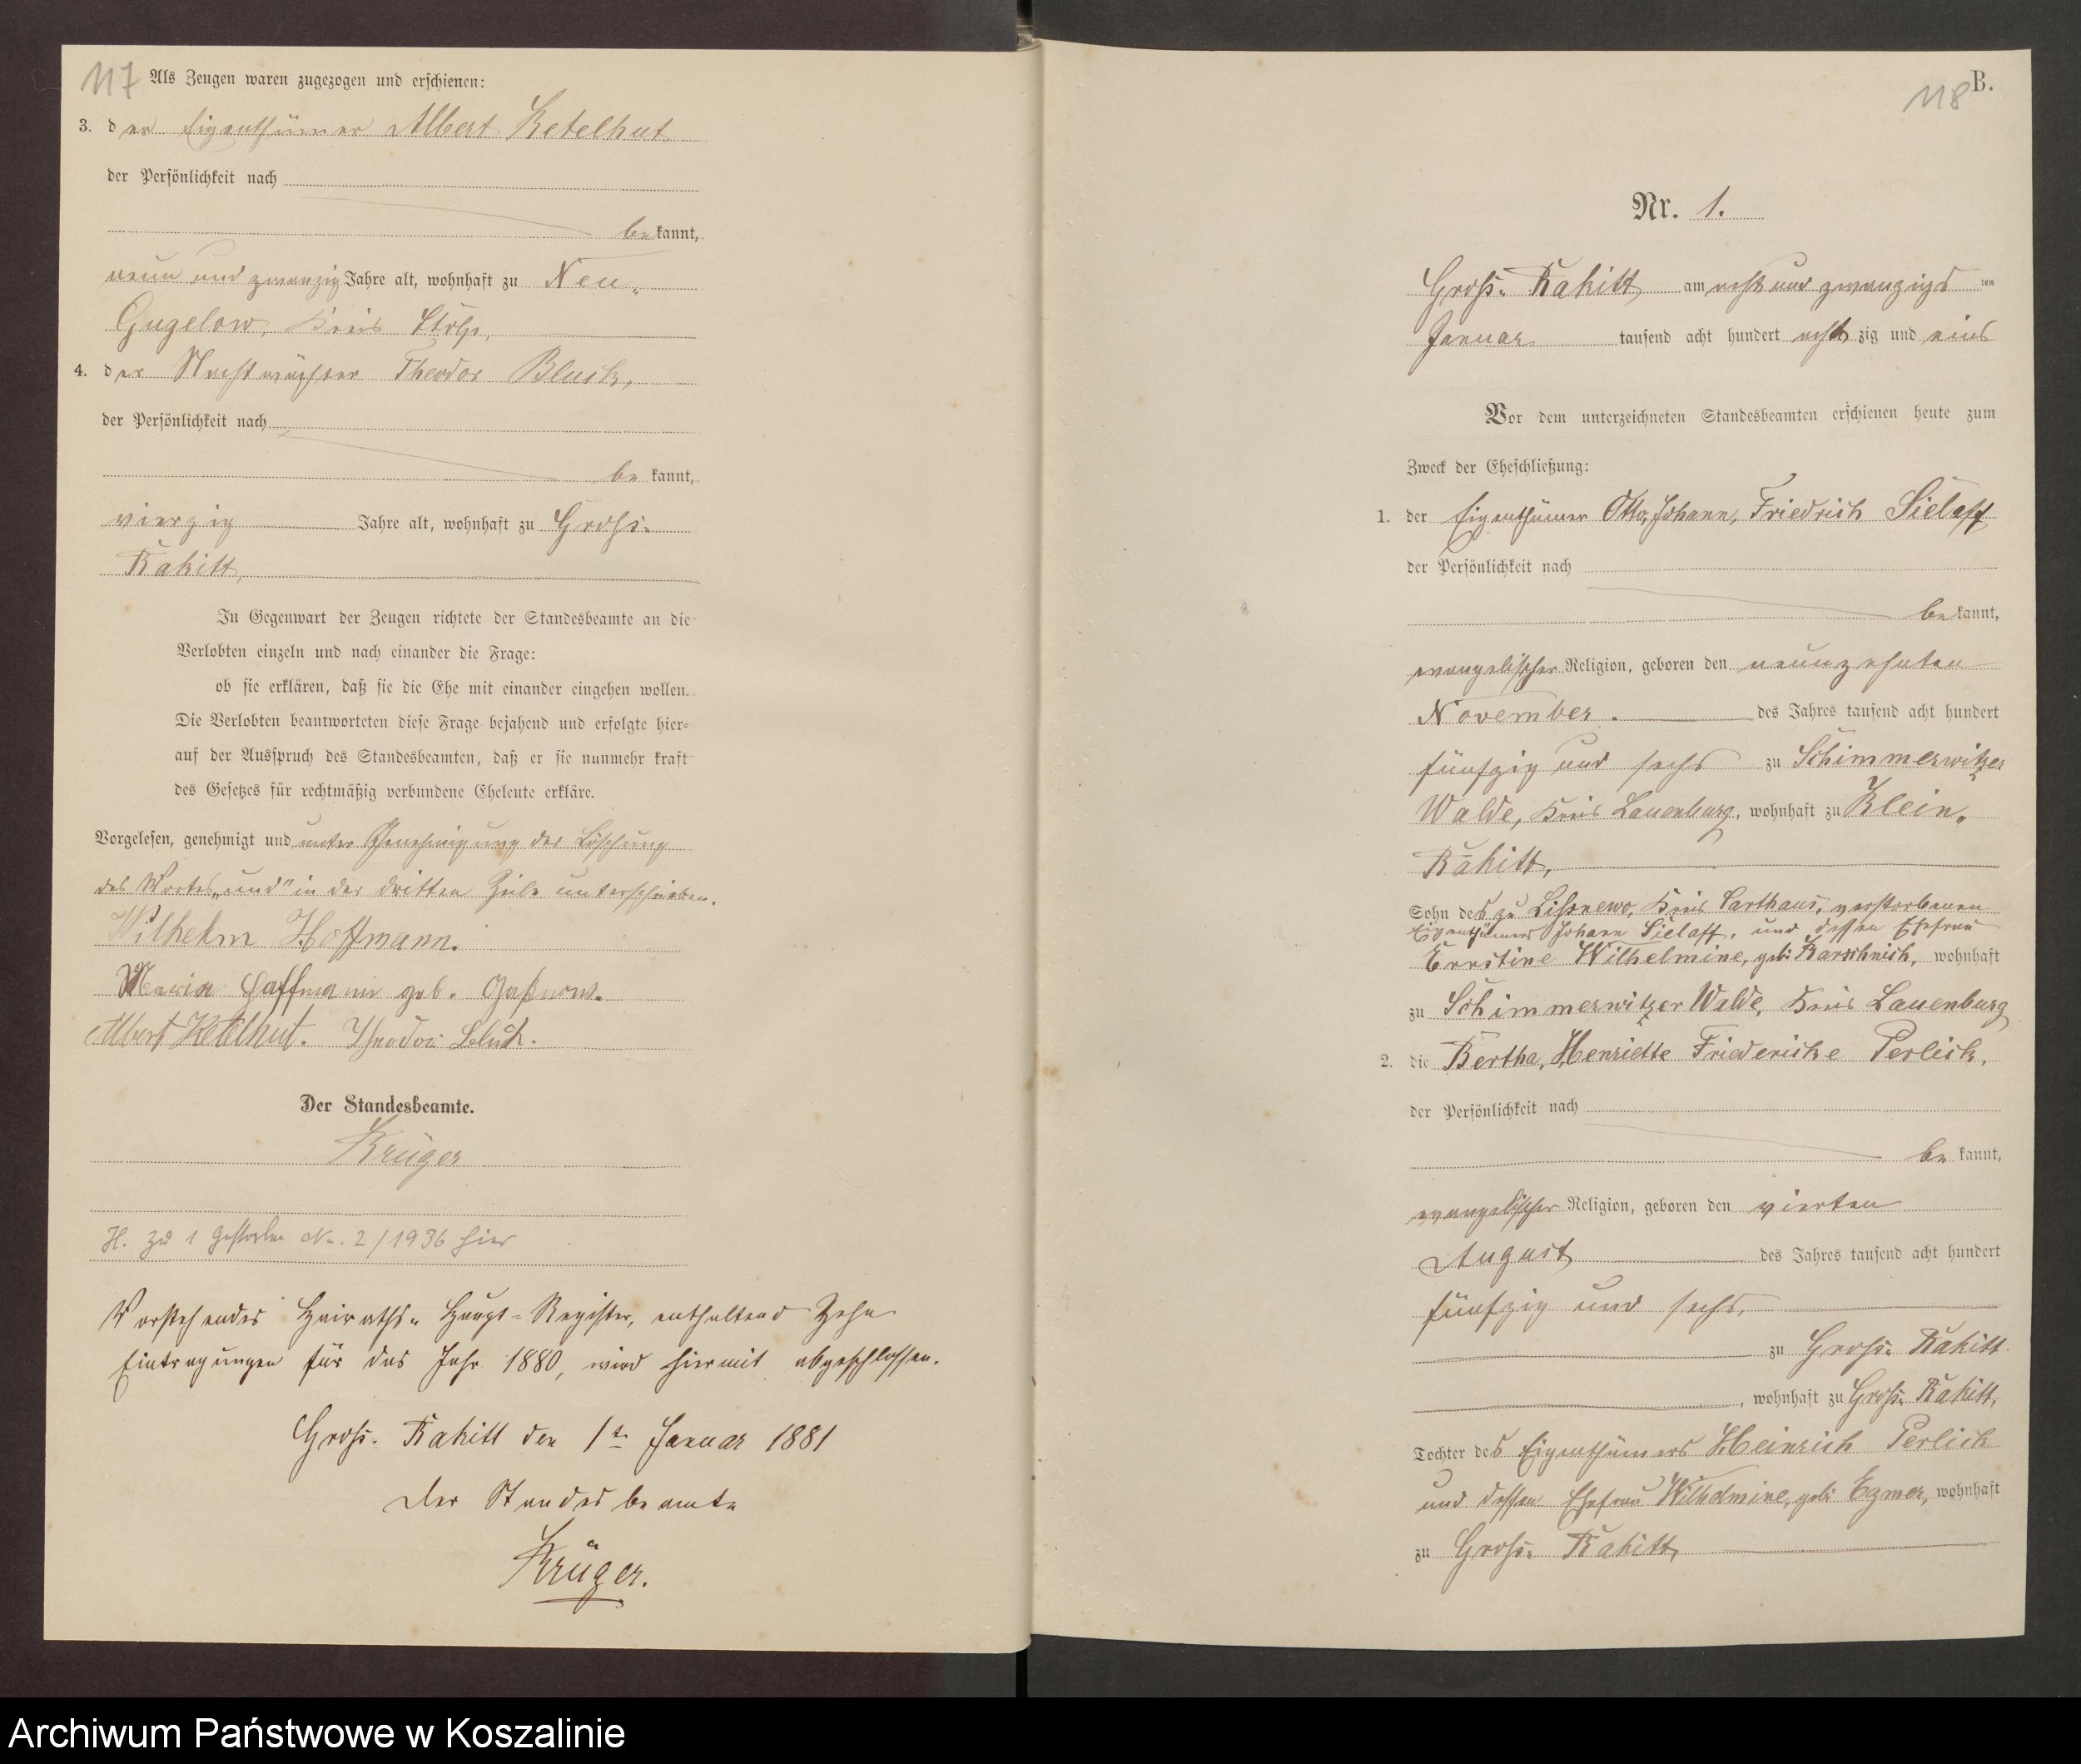 117
Als Zeugen waren zugezogen und erschienen:
3. der Eigenthümer Albert Ketelhut
der Persönlichkeit nach
bekannt,
neun und zwanzig Jahre alt, wohnhaft zu Neu-
Gugelow, Kreis Stolp,
4. der Nachtwächter Theodor Bluck,
der Persönlichkeit nach
be kannt,
vierzig Jahre alt, wohnhaft zu Gross-
Rakitt,
In Gegenwart der Zeugen richtete der Standesbeamte an die
Verlobten einzeln und nach einander die Frage:
ob sie erklären, daß sie die Ehe mit einander eingehen wollen.
Die Verlobten beantworteten diese Frage bejahend und erfolgte hier-
auf der Ausspruch des Standesbeamten, daß er sie nunmehr kraft
des Gesetzes für rechtmäßig verbundene Eheleute erkläre.
Vorgelesen, genehmigt und unter Genehmigung der Löschung
des Wortes „und" in der dritten Zeile unterschrieben.
Wilhelm Hoffmann.
Maria Hoffmann geb.
Albert Ketelhut. Theodor Bluck.
Der Standesbeamte.
Krüger
H. zu 1 gestorben Nr. 2/1936 hier
Vorstehendes Heiraths-Haupt-Register, enthaltend Zehn
Eintragungen für das Jahr 1880, wird hiermit abgeschlossen.
Gross-Rakitt den 1ten Januar 1881
Der Standesbeamte
Krüger.
118
B.
Nr. 1.
Gross-Rakitt am acht und zwanzigsten
Januar tausend acht hundert acht zig und eins
Vor dem unterzeichneten Standesbeamten erschienen heute zum
Zweck der Eheschließung:
1. der Eigenthümer Otto, Johann, Friedrich Sielaff
der Persönlichkeit nach
bekannt,
evangelischer Religion, geboren den neunzehnten
November. des Jahres tausend acht hundert
fünfzig und sechs zu Schimmerwitzer
Walde, Kreis Lauenburg, wohnhaft zu Klein-
Rakitt,
Sohn des zu Lissnewo, Kreis Carthaus, verstorbenen
Eigenthümers Johann Sielaff, und dessen Ehefrau
Ernstine Wilhelmine, geb: Karschnich, wohnhaft
zu Schimmerwitzer Walde, Kreis Lauenburg
2. die Bertha, Henriette Friedericke Perlick,
der Persönlichkeit nach
be kannt,
evangelischer Religion, geboren den vierten
August des Jahres tausend acht hundert
fünfzig und sechs,
zu Gross-Rakitt
, wohnhaft zu Gross-Rakitt,
Tochter des Eigenthümers Heinrich Perlick
und dessen Ehefrau Wilhelmine, geb: Egmer, wohnhaft
zu Gross-Rakitt,
Archiwum Państwowe w Koszalinie